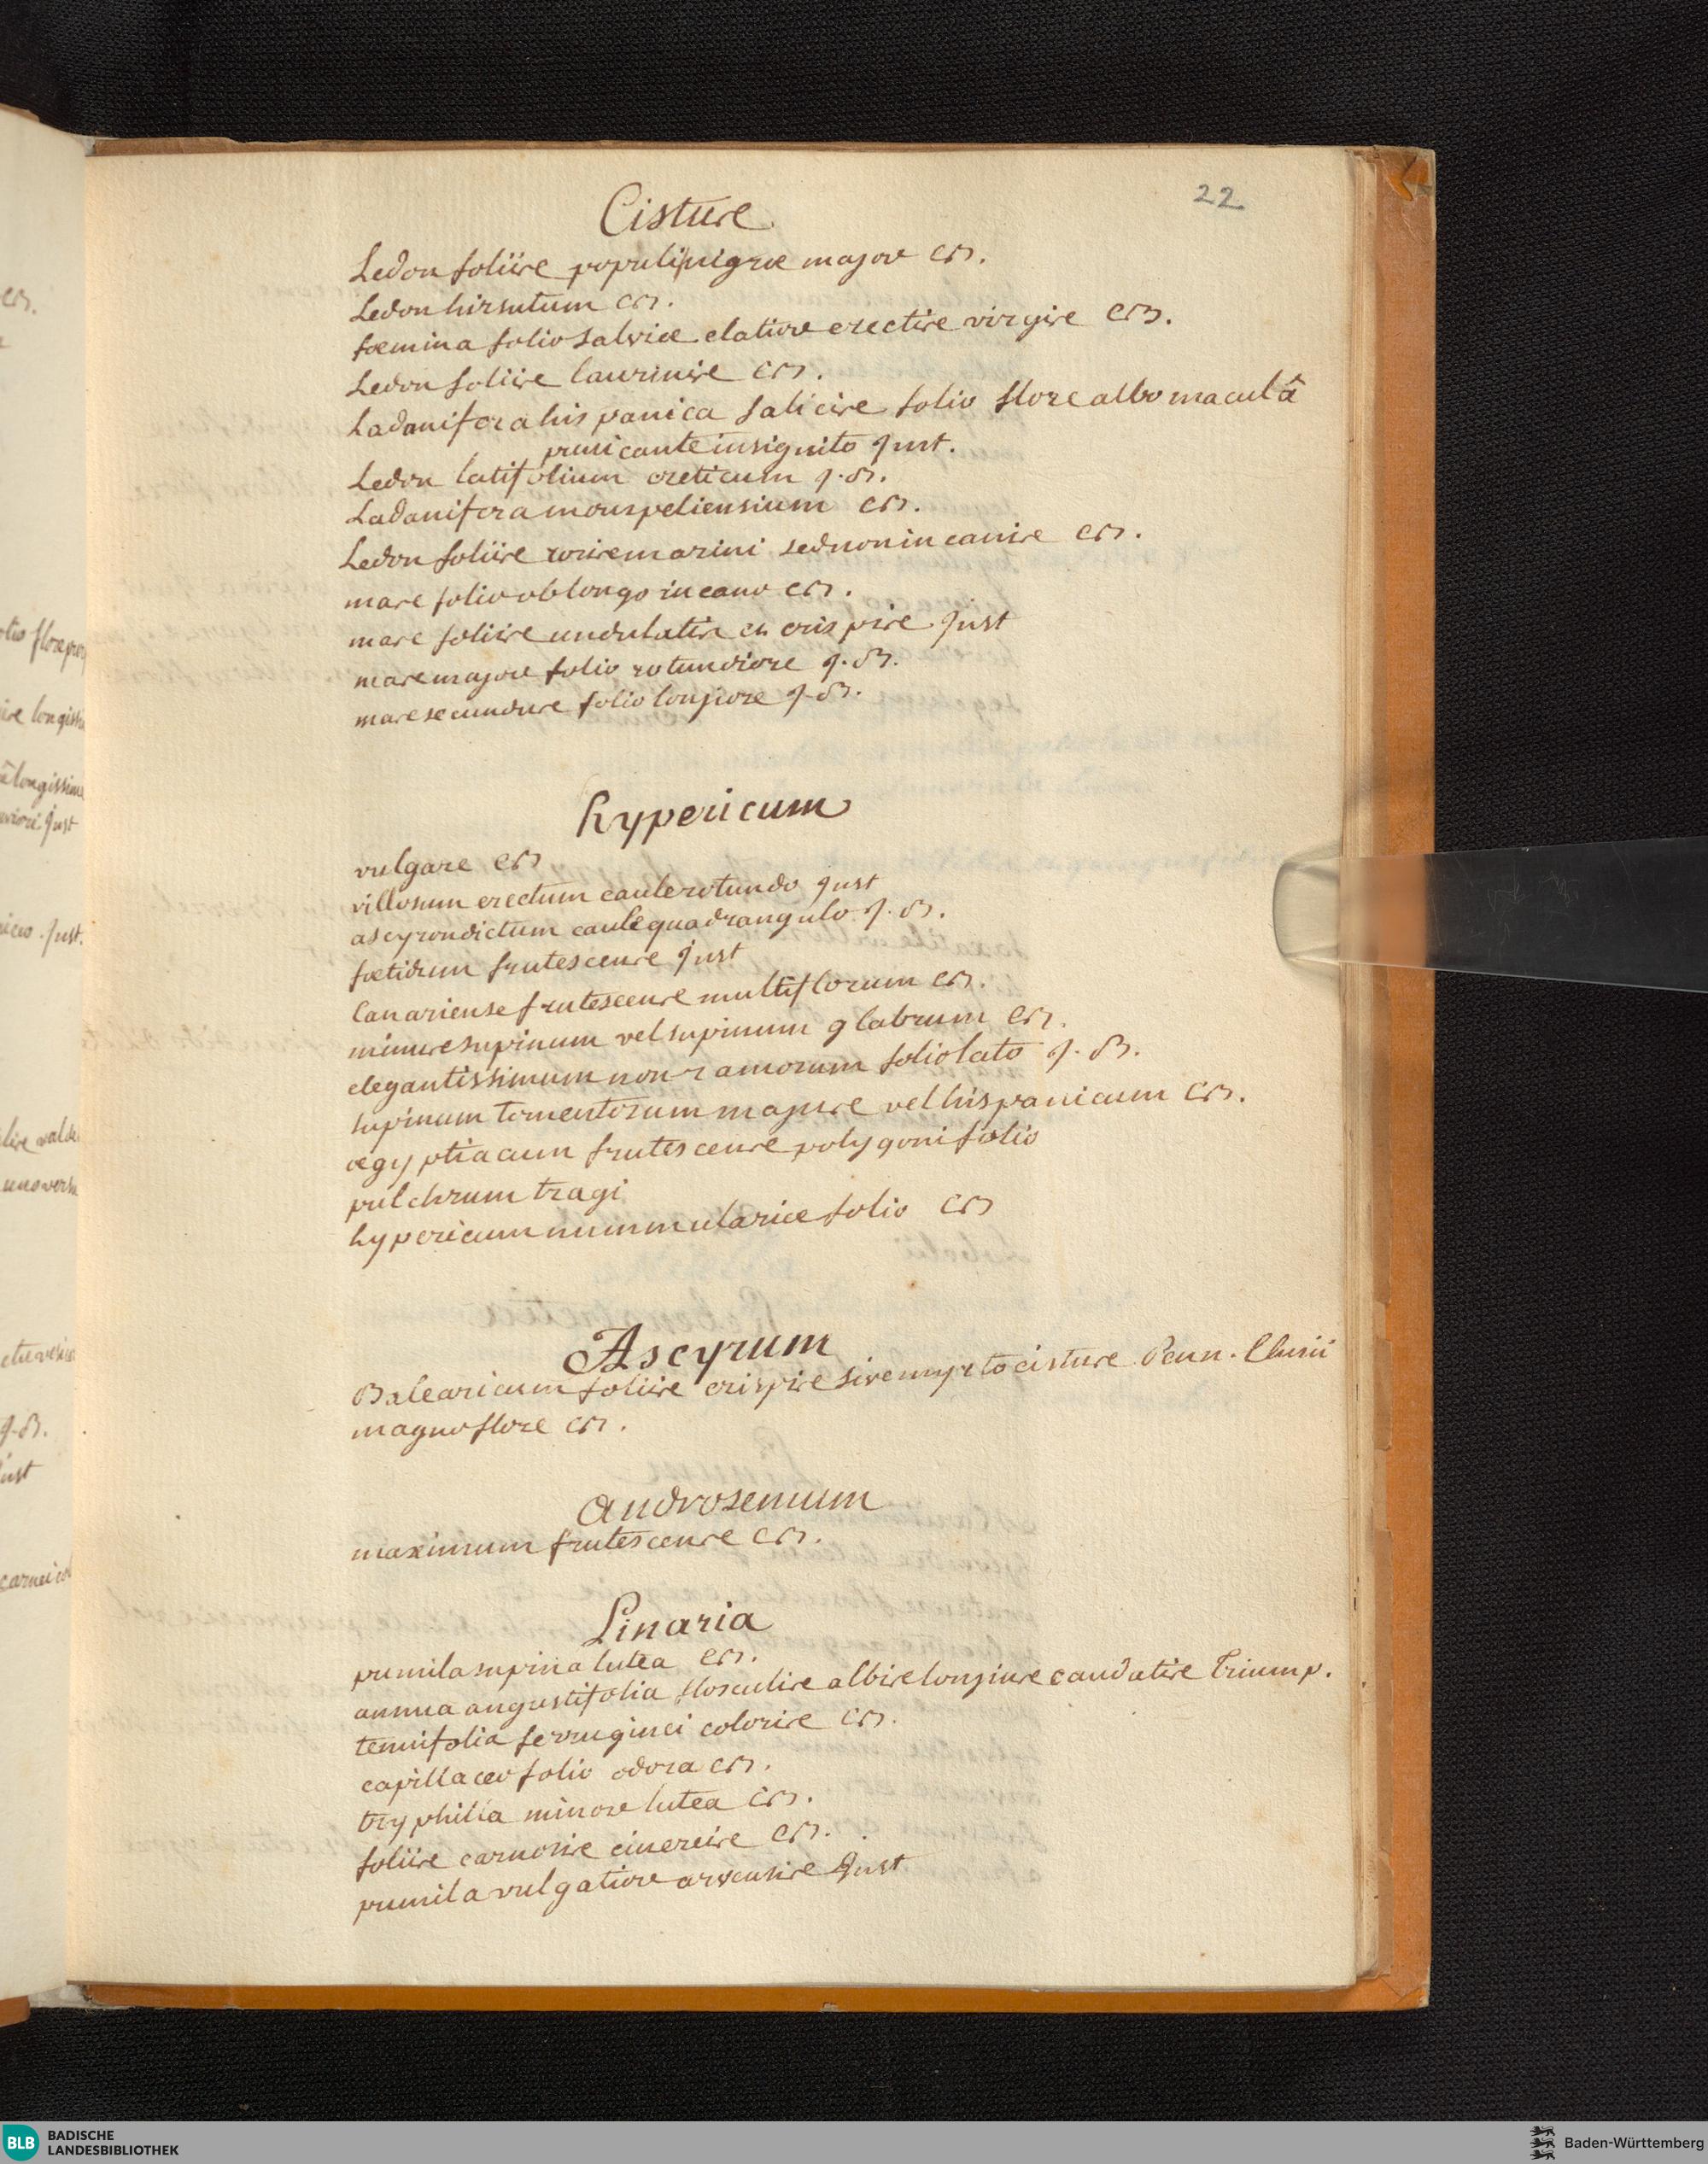 22
Cistus
Ledon foliis populi nigræ major CB.
Ledon hirsutum CB.
fœmina folio salviæ elatior erectis virgis CB.
Ledon foliis laurinis CB.
Ladanifera hispanica salicis folio flore albo maculâ
punicante insignito Just.
Ledon latifolium creticum J.B.
Ladanifera monspeliensium CB.
Ledon foliis rorismarini sed non incanis CB.
mare folio oblongo incano CB.
mare foliis undulatis et crispis Just
mare major folio rotundiore J.B.
mare secundus folio longiore J.B.
hypericum
vulgare CB
villosum erectum caule rotundo Just
ascyron dictum caule quadrangulo J.B.
fœtidum frutescens Just
Canariense frutescens multiflorum CB.
minus supinum vel supinum glabrum CB.
elegantissimum non ramosum folio lato J.B.
supinum tomentosum majus vel hispanicum CB.
ægyptiacum frutescens polygoni folio
pulchrum tragi
hypericum nummulariæ folio CB
Ascyrum
Balearicum foliis crispis sive myrto cistus Penn. Clusii
magno flore CB.
Androsemum
maximum frutescens CB.
Linaria
pumila supina lutea CB.
annua angustifolia flosculis albis longius caudatis Triump.
tenuifolia ferruginei coloris CB.
capillaceo folio odora CB.
tryphilla minor lutea CB.
foliis carnosis cinereis CB.
pumila vulgatior arvensis Just
BLB
BADISCHE
LANDESBIBLIOTHEK
Baden-Württemberg